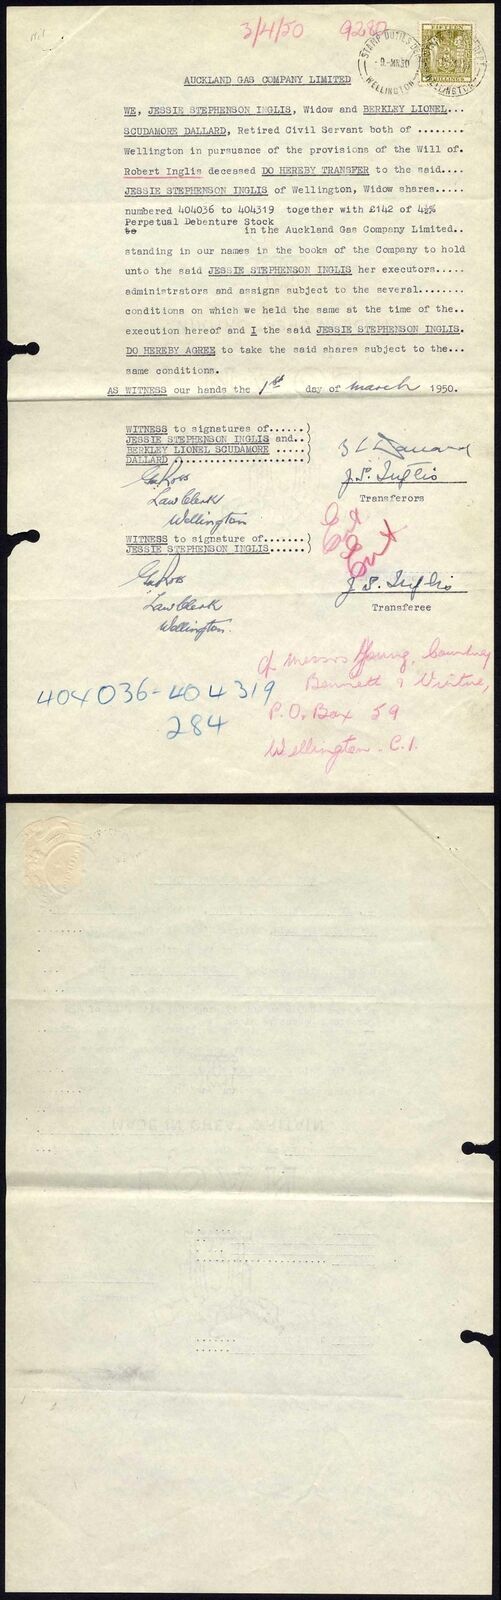 3/4/50 9280
STAMP DUTIES
WELLINGTON
SHILLINGS
AUCKLAND GAS COMPANY LIMITED
WE, JESSIE STEPHENSON INGLIS, Widow and BERKLEY LIONEL...
SCUDAMORE DALLARD, Retired Civil Servant both of ........
Wellington in pursuance of the provisions of the Will of.
Robert Inglis deceased DO HEREBY TRANSFER to the said....
JESSIE STEPHENSON INGLIS of Wellington, Widow shares.....
numbered 404036 to 404319 together with £142 of 4½%
Perpetual Debenture Stock
to in the Auckland Gas Company Limited..
standing in our names in the books of the Company to hold
unto the said JESSIE STEPHENSON INGLIS her executors.....
administrators and assigns subject to the several........
conditions on which we held the same at the time of the..
execution hereof and I the said JESSIE STEPHENSON INGLIS.
DO HEREBY AGREE to take the said shares subject to the...
same conditions.
AS WITNESS our hands the 1st day of march 1950.
WITNESS to signatures of......)
JESSIE STEPHENSON INGLIS and..)
BERKLEY LIONEL SCUDAMORE .....)
DALLARD ......................)
B L Dallard
J. S. Inglis
Transferors
Ross
Law Clerk
Wellington
WITNESS to signature of.......)
JESSIE STEPHENSON INGLIS......)
J. S. Inglis
Transferee
Ross
Law Clerk
Wellington.
404036-404319
284
c/ Messrs Young, Courtney
Bennett & Virtue,
P.O. Box 59
Wellington. C.1.